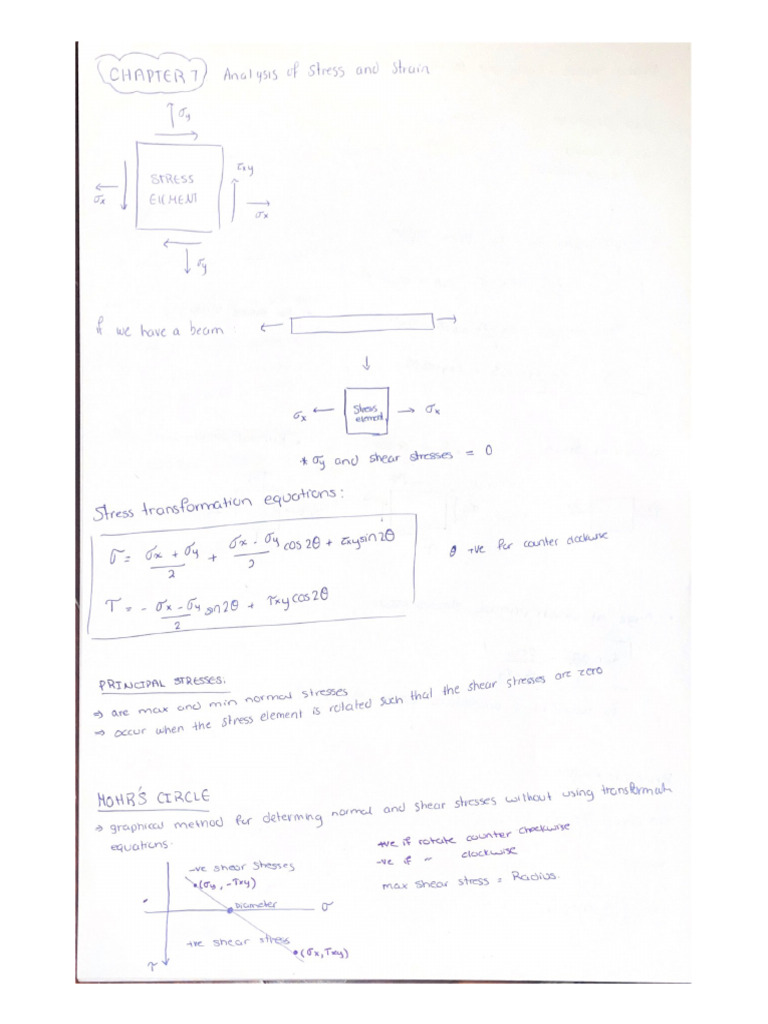 CHAPTER 7 Analysis of Stress and Strain
σy
τxy
STRESS
ELEMENT
σx
σx
σy
If we have a beam:
σx
Stress
element
σx
* σy and shear stresses = 0
Stress transformation equations:
σ = (σx + σy)/2 + (σx - σy)/2 cos2θ + τxy sin2θ
θ +ve for counter clockwise
τ = - (σx - σy)/2 sin2θ + τxy cos2θ
PRINCIPAL STRESSES:
⇒ are max and min normal stresses
⇒ occur when the stress element is rotated such that the shear stresses are zero
MOHR'S CIRCLE
⇒ graphical method for determing normal and shear stresses without using transformati
equations.
+ve if rotate counter clockwise
-ve if " clockwise
max shear stress = Radius.
-ve shear stresses
(σy, -τxy)
Diameter
σ
+ve shear stress
(σx, τxy)
τ